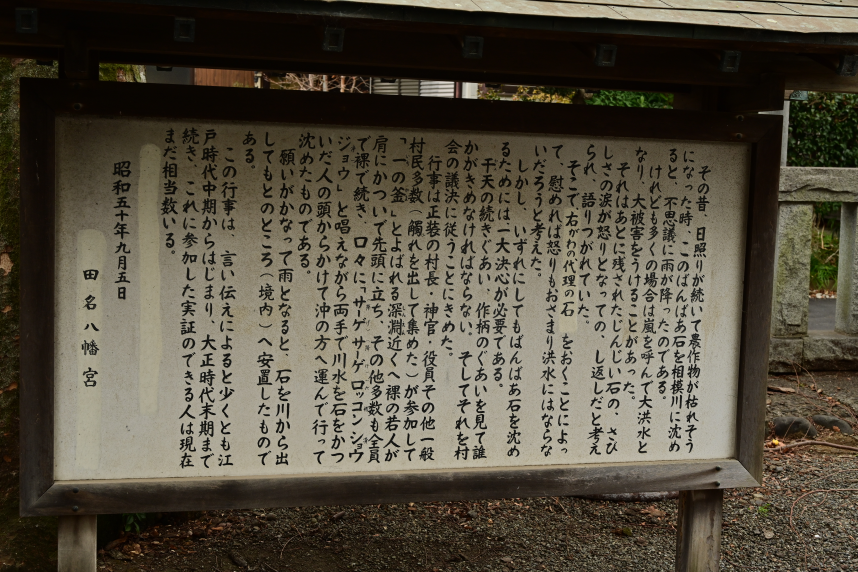 その昔、日照りが続いて農作物が枯れそう
になった時、このばんばあ石を相模川に沈め
ると、不思議に雨が降ったのである。
けれども多くの場合は嵐を呼んで大洪水と
なり、大被害をうけることがあった。
それはあとに残されたじんじい石の、さび
しさの涙が怒りとなっての、し返しだと考え
られ、語りつがれていた。
そこで、右がわの代理の石をおくことによっ
て、慰めれば怒りもおさまり洪水にはならな
いだろうと考えた。
しかし、いずれにしてもばんばあ石を沈め
るためには一大決心が必要である。
干天の続きぐあい、作柄のぐあいを見て誰
かがきめなければならない。そしてそれを村
会の議決に従うことにきめた。
行事は正装の村長・神官・役員その他一般
村民多数(觸れを出して集めた)が参加して
「一の釜」とよばれる深淵近くへ裸の若人が
肩にかついで先頭に立ち、その他多数も全員
で裸で続き、口々に、サーゲサーゲロッコンショウ
ジョウ」と唱えながら両手で川水を石をかつ
いだ人の頭からかけて沖の方へ運んで行って
沈めたものである。
願いがかなって雨となると、石を川から出
してもとのところ(境内)へ安置したもので
ある。
この行事は、言い伝えによると少くとも江
戸時代中期からはじまり、大正時代末期まで
続き、これに参加した実証のできる人は現在
まだ相当数いる。
昭和五十年九月五日
田名八幡宮